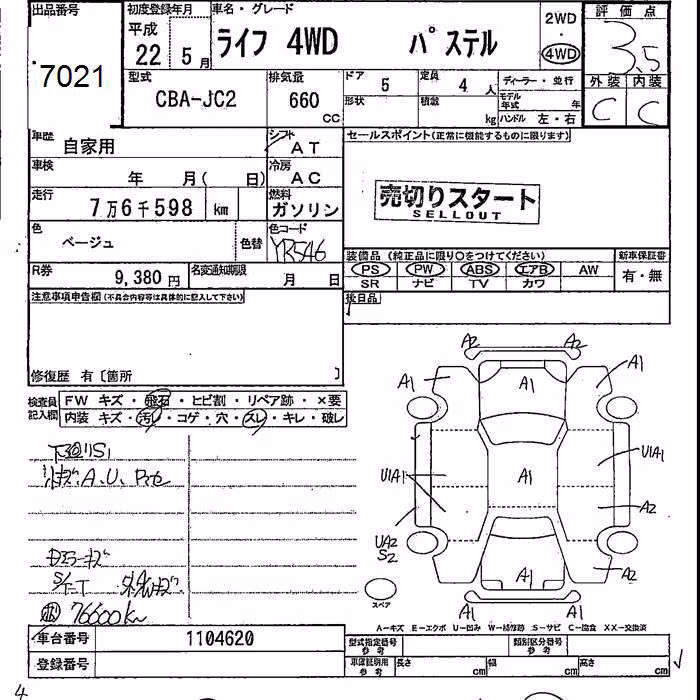 出品番号 初度登録年月 車名・グレード 2WD 評価点
7021 平成 22 5月 ライフ 4WD パステル ・ 4WD 3.5
型式 排気量 ドア 5 定員 4人 ディーラー・並行 外装 内装
CBA-JC2 660 CC 形状 積載 kg モデル年式 年 ハンドル 左・右 C C
車歴 自家用 シフト AT セールスポイント(正常に機能するものに限ります)
車検 年 月( 日) 冷房 AC
走行 7万6千598 km 燃料 ガソリン 売切りスタート
SELLOUT
色 ベージュ 色替 色コード YR546
装備品(純正品に限り○をつけてください) 新車保証書
R券 9,380円 名変通知期限 月 日 PS PW ABS エアB AW 有・無
SR ナビ TV カワ
注意事項申告欄(不具合内容等は具体的に記入して下さい) 後日品
修復歴 有〔箇所 〕
検査員記入欄 FW キズ・飛石・ヒビ割・リペア跡・×要
内装 キズ・汚れ・コゲ・穴・スレ・キレ・破レ
A2 A2
A1 A1 A1
U1A1 A1 U1A1
A2
UA2
S2
A1 A2
スペア A1 A1
A.U.
76600km
A-キズ E-エクボ U-凹み W-補修跡 S-サビ C-腐食 XX-交換済
車台番号 1104620 型式指定番号 参考 類別区分番号 参考
登録番号 車庫証明用 参考 長さ cm 幅 cm 高さ cm
4